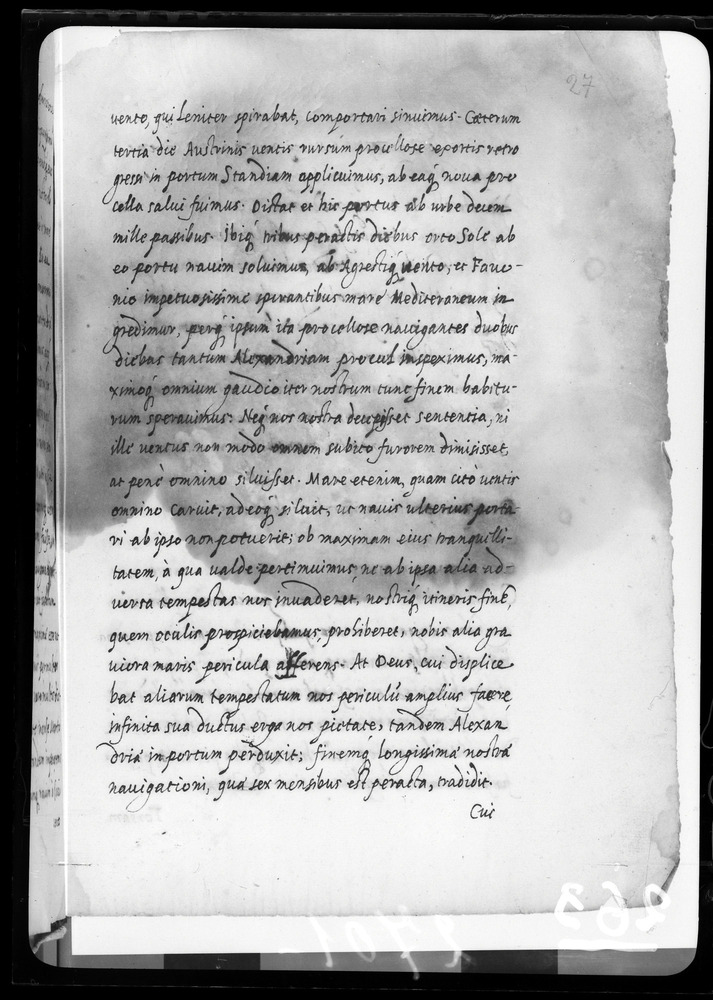 27
vento, qui leniter spirabat, comportari sinuimus. Cæterum
tertia die Austrinis ventis rursum procellose exortis retro
gressi in portum Standiam applicuimus, ab eaq́ noua pro
cella salui fuimus. Distat et hic portus ab urbe decem
mille passibus. Ibiq́ tribus peractis diebus orto Sole ab
eo portu nauim soluimus, ab Agrestiq́ vento, et Fauo-
nio impetuosissime spirantibus mare Mediteraneum in
gredimur, perq́ ipsum ita procellose nauigantes duobus
diebus tantum Alexandriam procul inspeximus, ma-
ximoq́ omnium gaudio iter nostrum tunc finem habitu-
rum sperauimus: Neq́ nos nostra decepisset sententia, ni
ille ventus non modo omnem subito furorem dimisisset,
at penè omnino siluisset. Mare etenim, quam citò ventis
omnino caruit, adeoq́ siluit, ut nauis ulterius porta-
ri ab ipso non potuerit; ob maximam eius tranquilli-
tatem, à qua valde pertimuimus, ne ab ipsa alia ad-
versa tempestas nos inuaderet, nostriq́ itineris finē,
quem oculis prospiciebamus, prohiberet, nobis alia gra
uiora maris pericula afferens. At Deus, cui displice
bat aliarum tempestatum nos periculū amplius facere,
infinita sua ductus erga nos pietate, tandem Alexan
driæ in portum perduxit; finemq́ longissimæ nostræ
nauigationi, quæ sex mensibus est peracta, tradidit.
Cui
263
1701